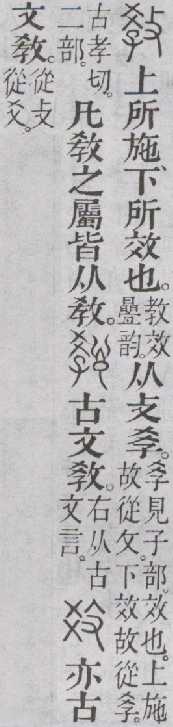 上所施下所效也。教效疊韵。从攴𡥈。𡥈見子部。效也。上施故從攵。下效故從𡥈。
古孝切。二部。凡敎之屬皆从敎。古文敎。右从古文言。亦古
文敎。從攴從爻。